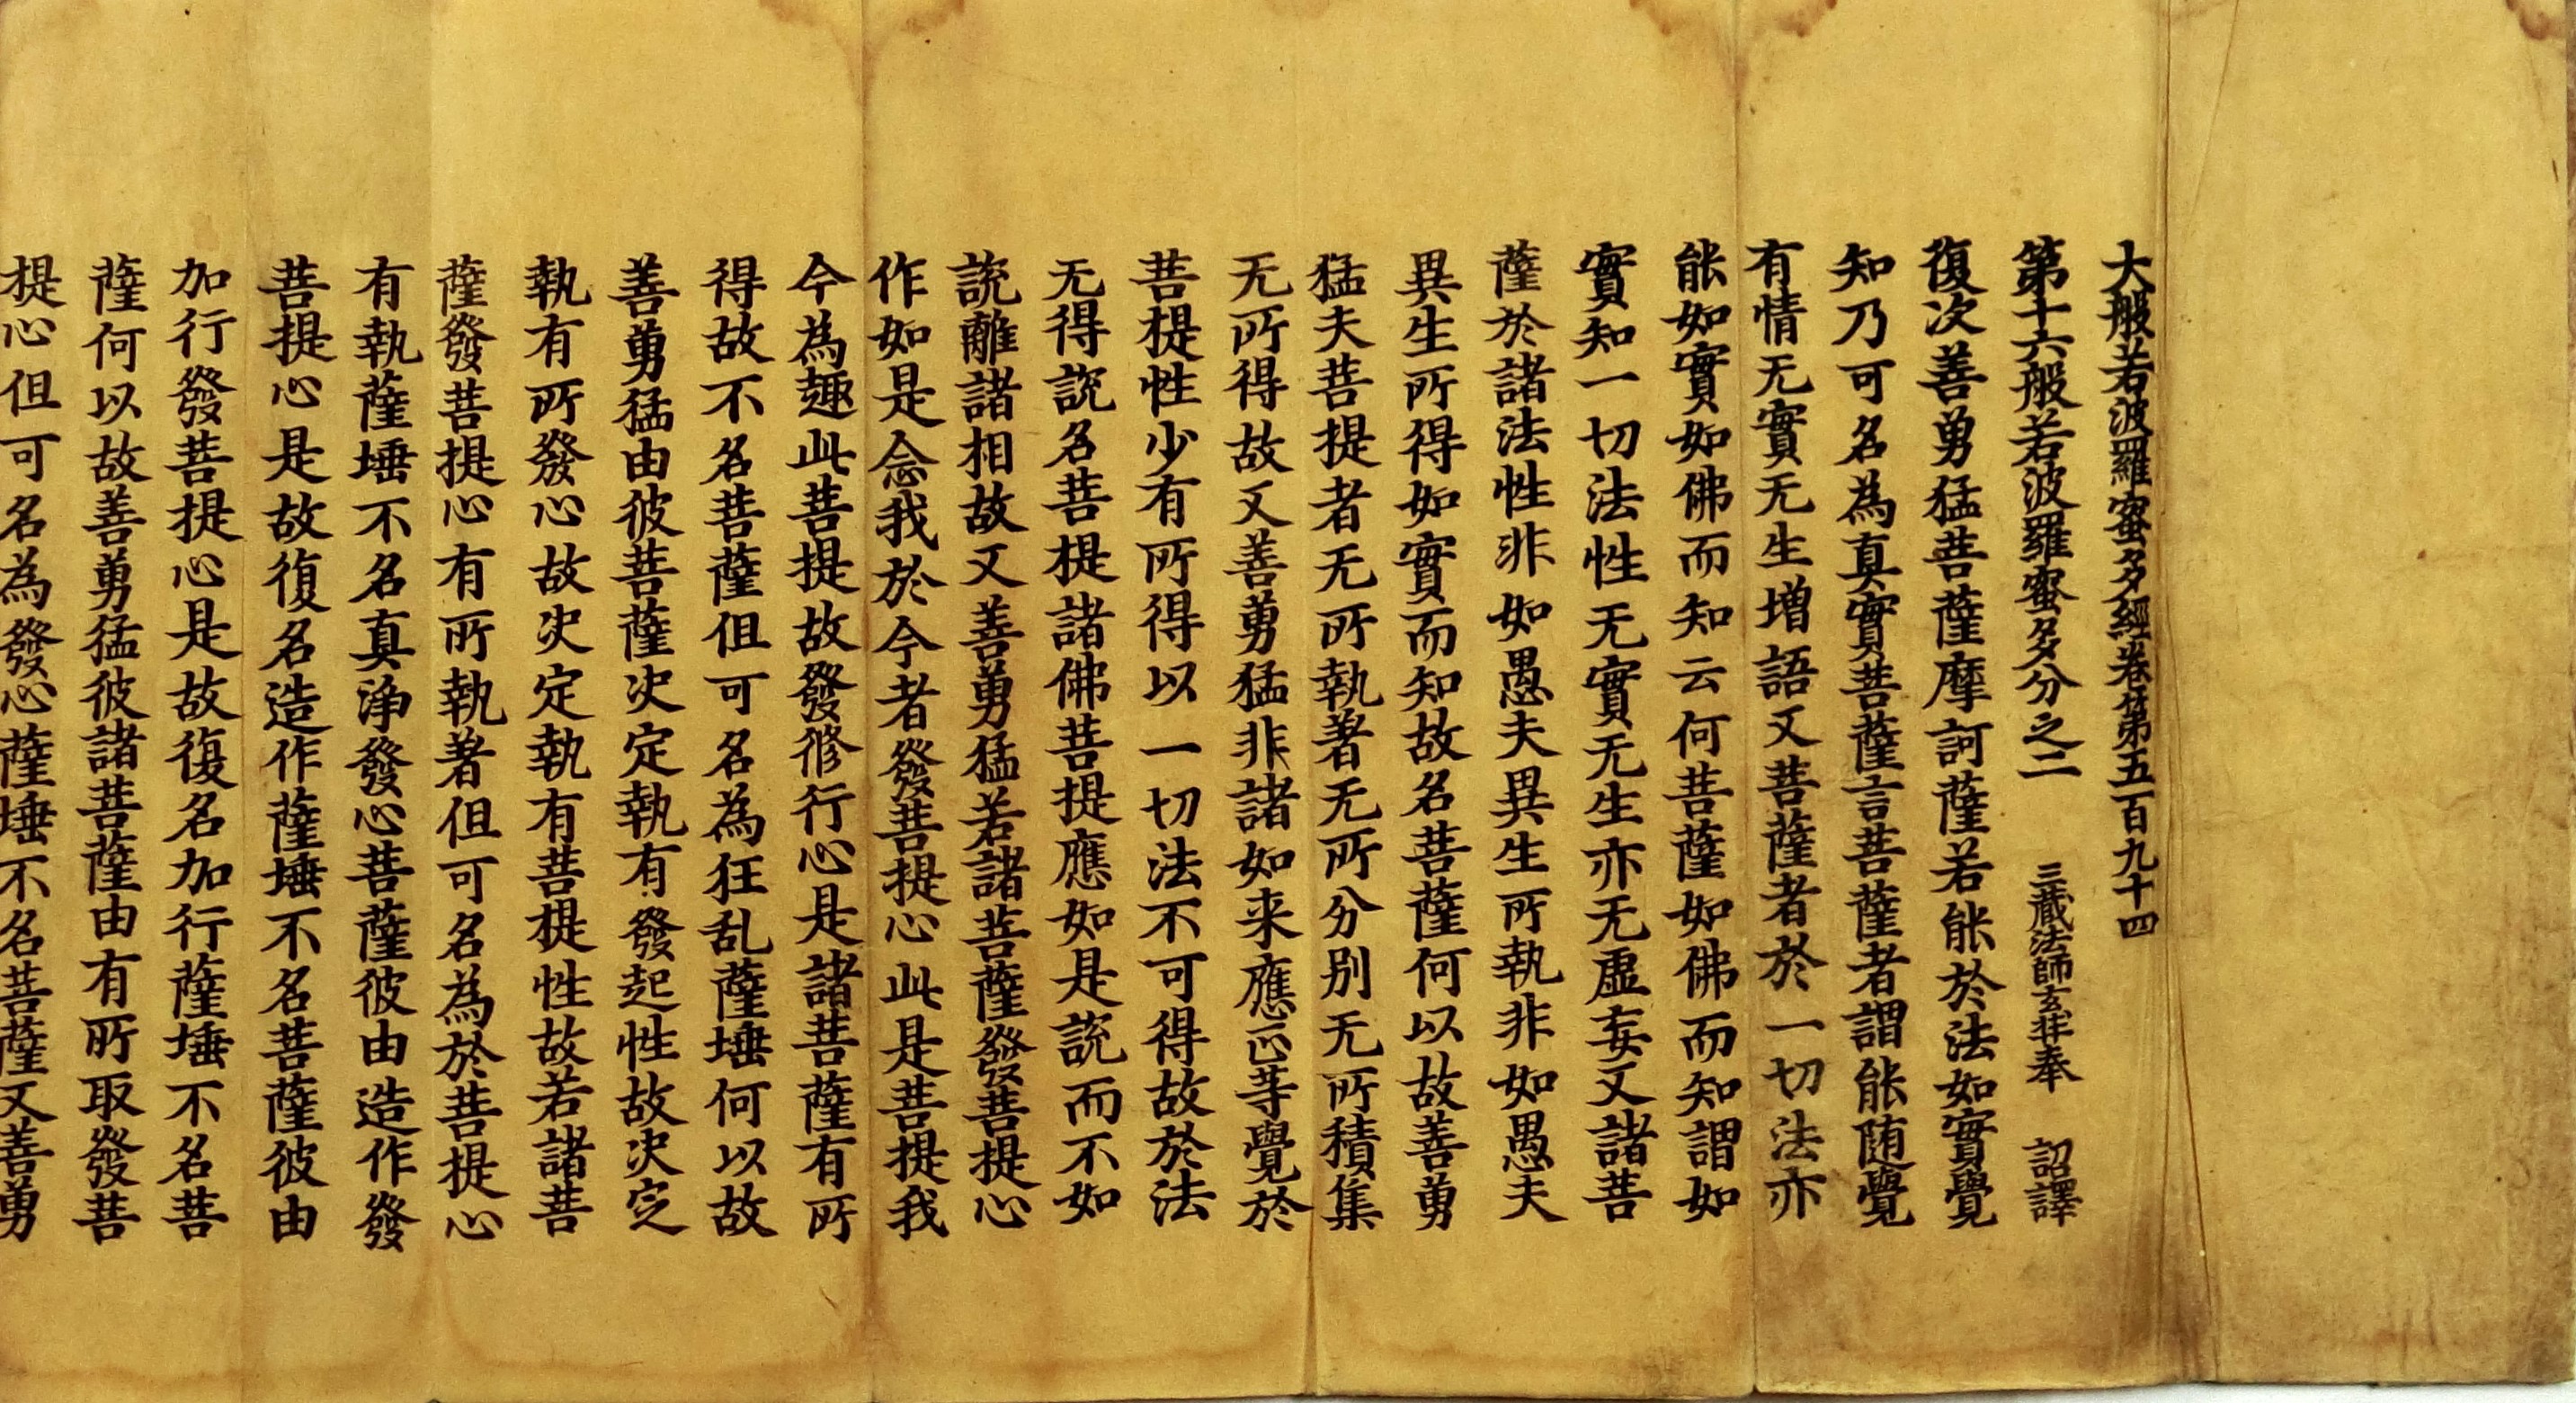 大般若波羅蜜多經卷第五百九十四
第十六般若波羅蜜多分之二 三藏法師玄奘奉 詔譯
復次善勇猛菩薩摩訶薩若能於法如實覺
知乃可名為真實菩薩言菩薩者謂能随覺
有情无實无生增語又菩薩者於一切法亦
能如實如佛而知云何菩薩如佛而知謂如
實知一切法性无實无生亦无虛妄又諸菩
薩於諸法性非如愚夫異生所執非如愚夫
異生所得如實而知故名菩薩何以故善勇
猛夫菩提者无所執著无所分別无所積集
无所得故又善勇猛非諸如来應正等覺於
菩提性少有所得以一切法不可得故於法
无得說名菩提諸佛菩提應如是說而不如
說離諸相故又善勇猛若諸菩薩發菩提心
作如是念我於今者發菩提心此是菩提我
今為趣此菩提故發修行心是諸菩薩有所
得故不名菩薩但可名為狂乱薩埵何以故
善勇猛由彼菩薩決定執有發起性故決定
執有所發心故決定執有菩提性故若諸菩
薩發菩提心有所執著但可名為於菩提心
有執薩埵不名真淨發心菩薩彼由造作發
菩提心是故復名造作薩埵不名菩薩彼由
加行發菩提心是故復名加行薩埵不名菩
薩何以故善勇猛彼諸菩薩由有所取發菩
提心但可名為發心薩埵不名菩薩又善勇